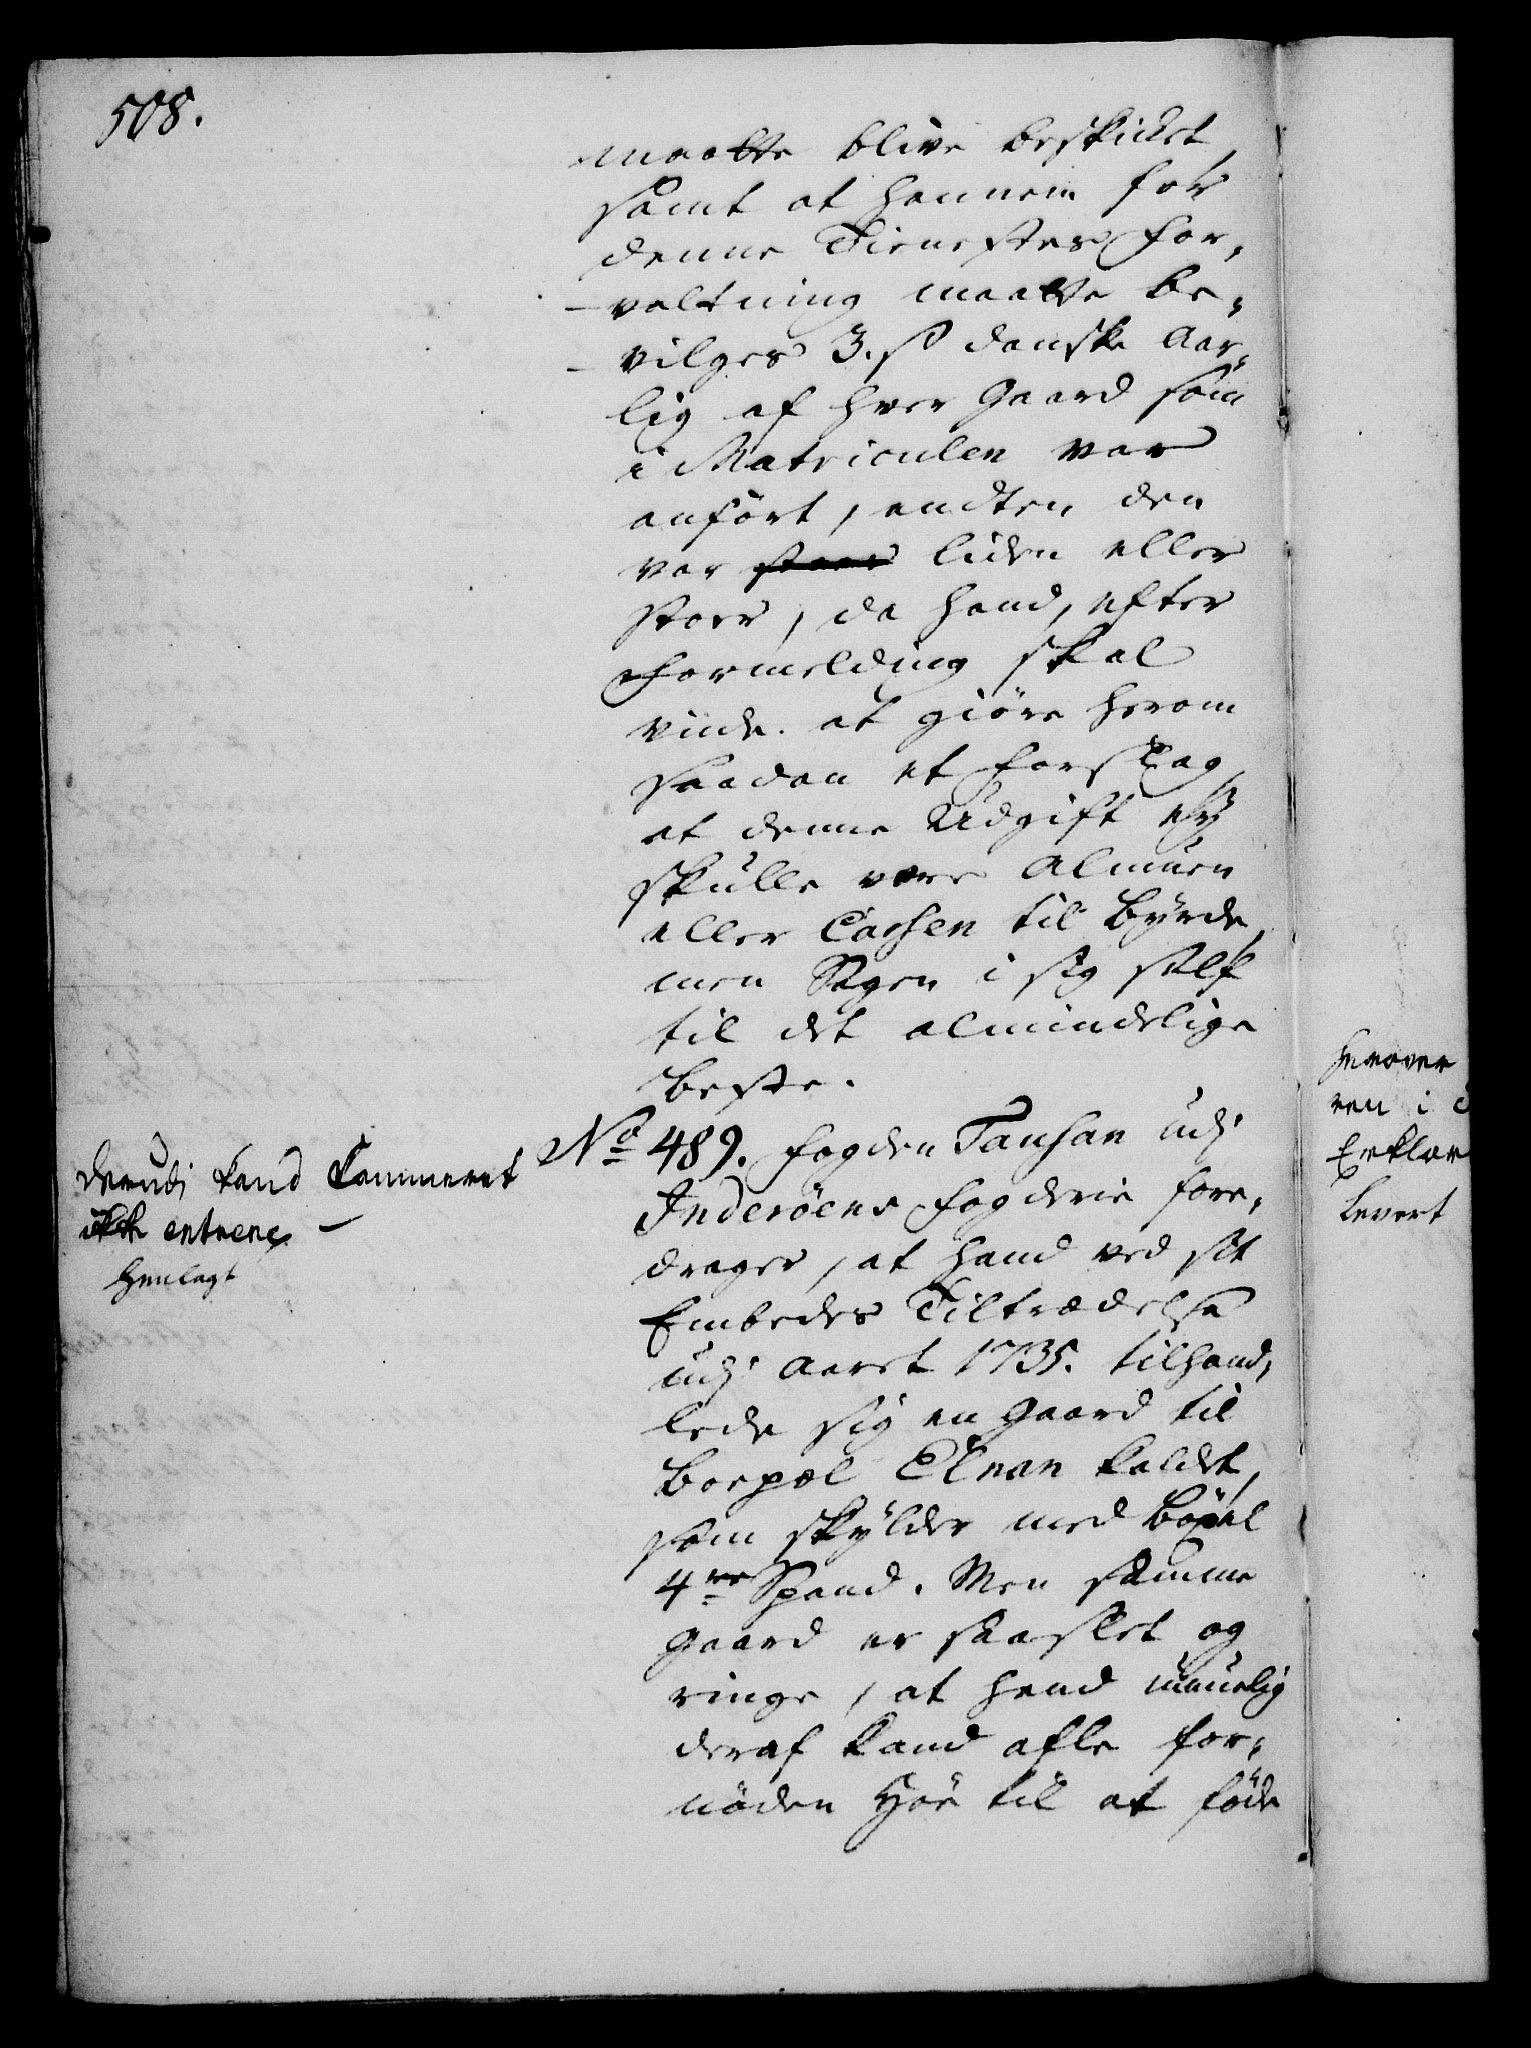 508.
maatte blive beskicket,
samt at hannem for
denne Tienestes for„
valtning maatte be„
vilges 3. ß danske Aar„
lig af hver Gaard som
i Matriculen var
anført, endten den
var stoer liden eller
stoer, da hand, efter
formelding skal
viide at giøre herom
saadan et forslag,
at denne Udgift ey
skulle være Almuen
eller Cassen til byrde,
men Sagen i sig self
til det almindelige
beste.
No 489. fogden Tausan udj
Inderöens fogderie fore„
drager, at hand ved sit
Embedes Tiltrædelse
udj Aaret 1735. tilhand„
lede sig en Gaard til
boepæl Elnan kaldet,
som skylder med böxel
4re Spand. Men samme
gaard er saa slet og
ringe, at hand umuelig
deraf kand afle for„
nöden Höe til at föde
derudj kand Cammeret
ikke entrere. —
Henlagt
Herover
ren i
Erklær
levert